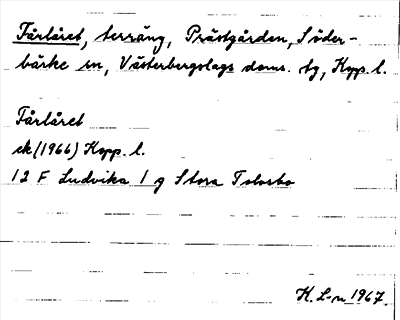 Fårlåret, terräng, Prästgården, Söder-
bärke sn, Västerbergslags doms. tg, Kopp. l.
Fårlåret
ek (1966) Kopp. l.
12 F Ludvika 1 g Stora
K. L-n 1967.